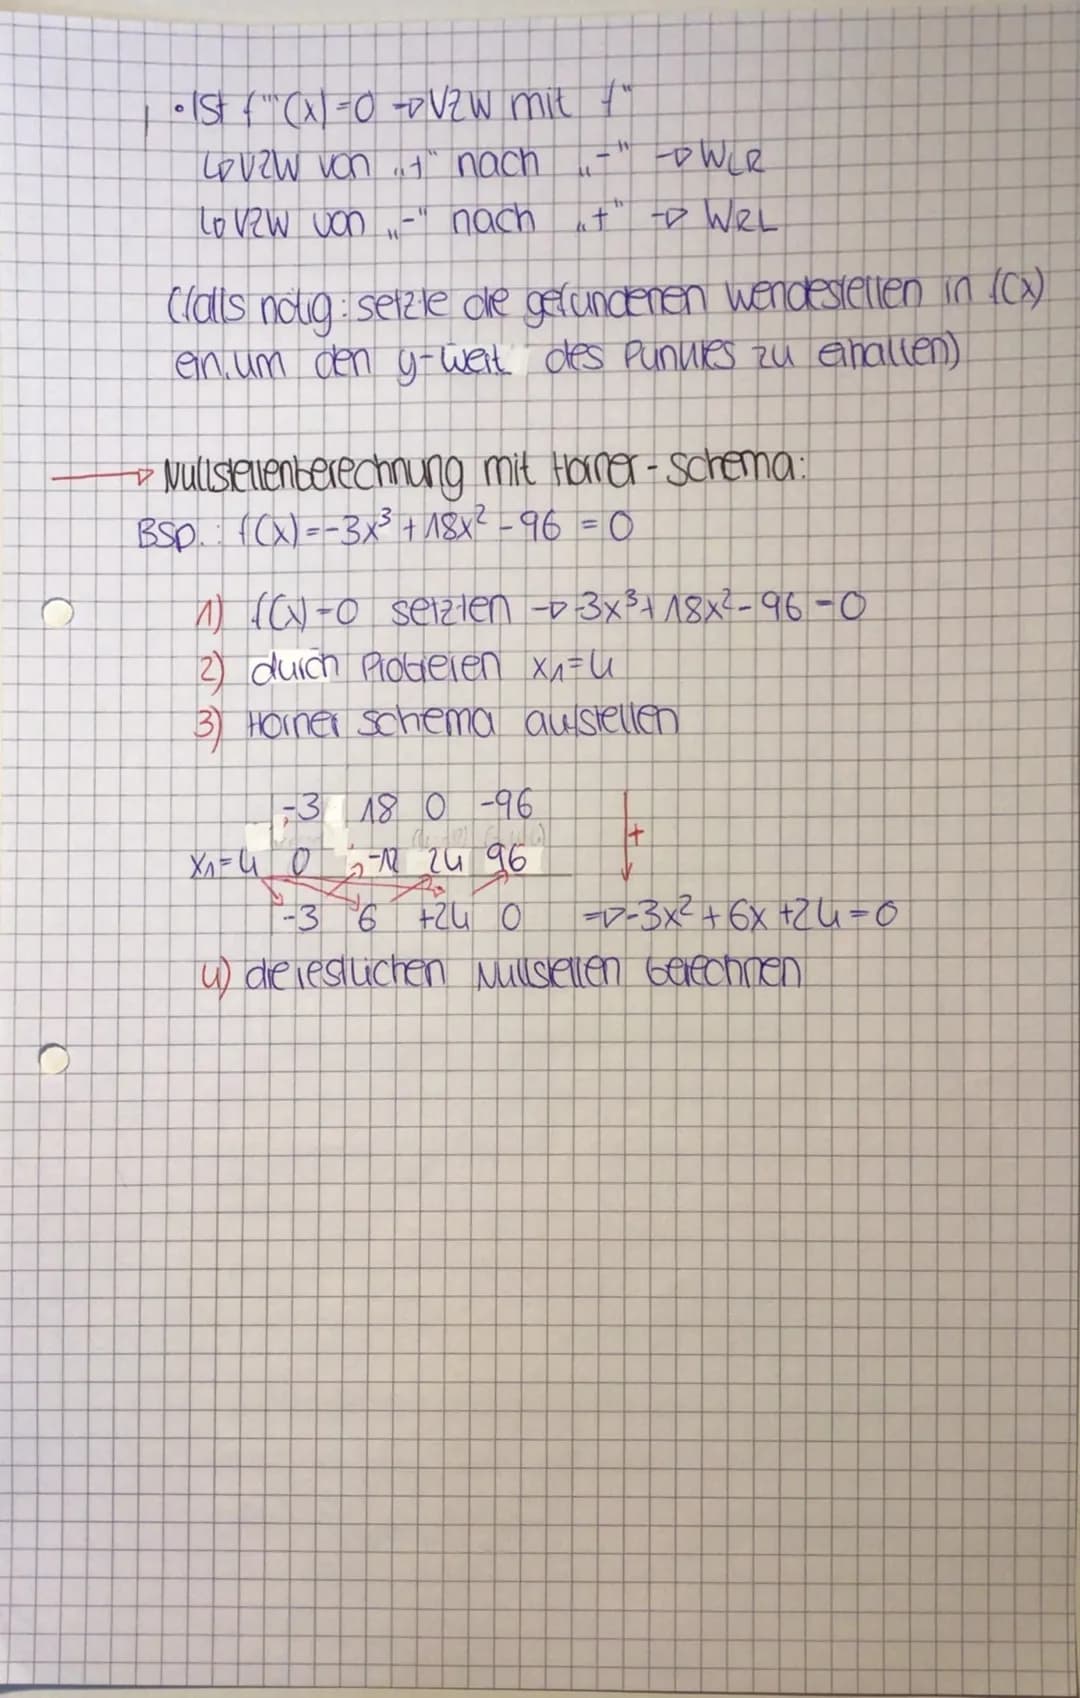 • Ist f'''(x)=0 → VZW mit f''
↳ VZW von „+" nach „-" → WLR
↳ VZW von „-" nach „+" → WRL
(falls nötig: setzte die gefundenen Wendestellen in f(x)
ein, um den y-Wert des Punktes zu erhalten)
→ Nullstellenberechnung mit Horner-Schema:
Bsp.: f(x)=-3x³+18x²-96=0
1) f(x)=0 setzten → -3x³+18x²-96=0
2) durch Probieren x₁=4
3) Horner schema aufstellen
-3 18 0 -96
+
x₁=4 0 -12 24 96
-3 6 +24 0 ⇒ -3x²+6x+24=0
4) die restlichen Nullstellen berechnen